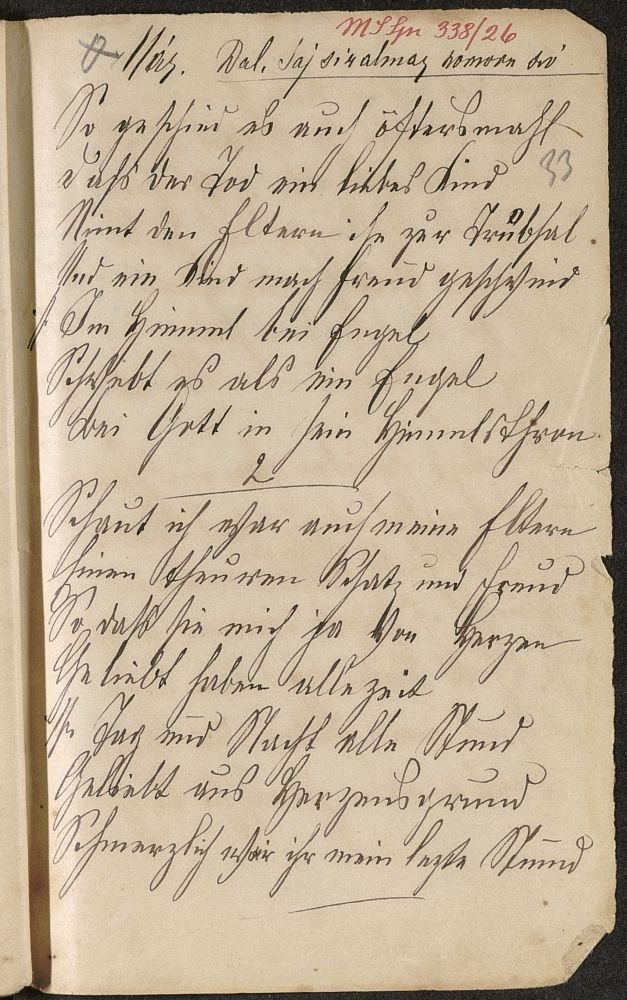 MSHn 338/26
Dal. Jaj siralmaz
So geschied es auch öftersmahl
33
dass der Tod ein liebes Kind
Nimt den Eltern ihr zur Trübsal
Und ein Kind mach freud geschwind
Im Himmel bei Engel
Schwebt es als ein Engel
bei Gott in sein Himmelsthron
2
Schaut ich war auch meine Eltern
Einen theuren Schatz und Freud
So dass sie mich ja von Herzen
Geliebt haben allezeit
Tag und Nacht alle Stund
Geliebt aus Herzensgrund
Schmerzlich war ihr mein lezte Stund